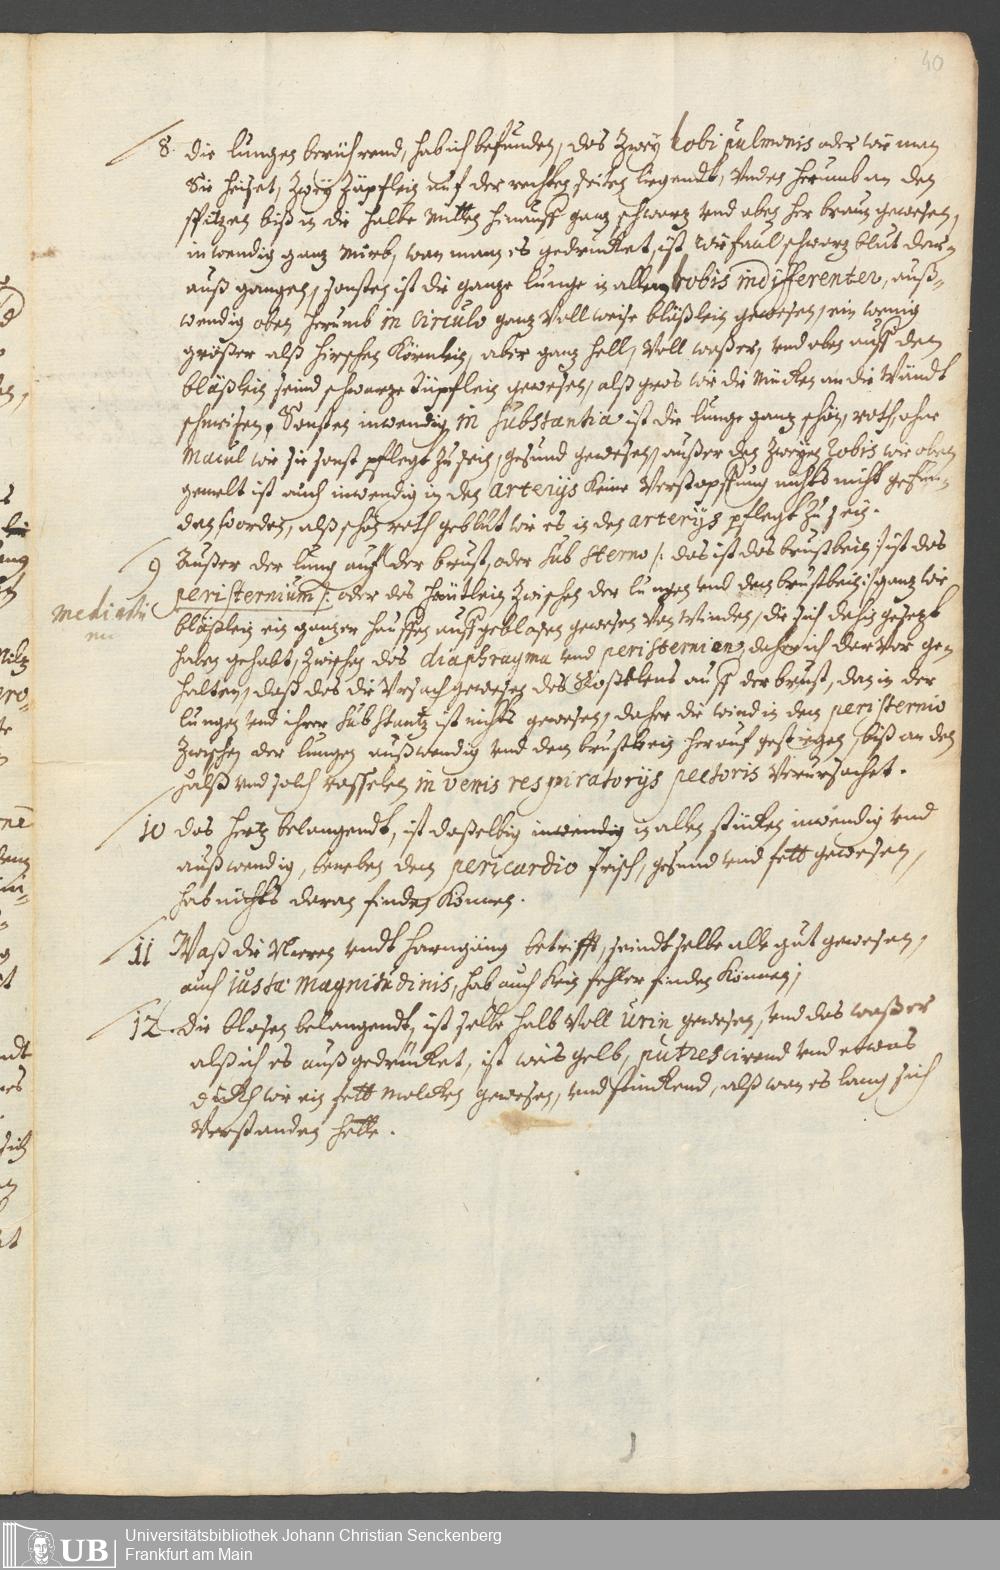 40
8. die lungen berührend, hab ich befunden, das zwey lobi pulmonis oder wie man
Sie heiset, zwey zäpflein auf der rechten seiten liegendt, unden herumb an den
spitzen biß in die halbe mitten hinauff gantz schwartz und oben her braun gewesen,
inwendig gantz mürb, wan man es gedrucket, ist wie faul schwartz blut dar-
auß gangen, sonsten ist die gantze lunge in allen lobis indifferenter, auß-
wendig oben herumb in circulo gantz voll weise bläßlein gewesen, ein wenig
größer alß hirschen körnlein, aber gantz hell, voll waßer, und oben auff den
bläßlein seind schwartze düpflein gewesen, alß gros wie die mücken an die wändt
schmeisen. Sonsten inwendig in substantia ist die lunge gantz schön, roth, ohne
macul wie sie sonst pflegt zu sein, gesund gewesen, außer den zweyen lobis wie oben
gemelt ist auch inwendig in den arterijs keine verstopffung nichts nicht gefun-
den worden, alß schön roth geblüt wie es in den arterijs pflegt zu sein.
9 Außer der lung auff der brust, oder sub sterno /: das ist das brustbein :/ ist das
peristernium /: oder das häutlein zwischen der lungen und dem brustbein :/ gantz wie
mediasti
num
bläßlein ein gantzer hauffen auffgeblasen gewesen von winden, die sich dahin gesetzt
haben gehabt, zwischen das diaphragma und peristernium, daher ich darvor ge-
halten, daß das die ursach gewesen des Rößlens auff der brust, dan in der
lungen und ihrer substantz ist nichts gewesen, daher die wind in dem peristernio
zwischen der lungen außwendig und dem brustbein herauf gestiegen, biß an den
halß und solch rasselen in venis respiratorijs pectoris verursachet.
10 das hertz belangendt, ist daßelbig inwendig in allen stücken inwendig und
außwendig, beneben dem pericardio frisch, gesund und fett gewesen,
hab nichts daran finden können.
11 Waß die Nieren undt harngäng betrifft, seindt selbe alle gut gewesen,
auch iusta magnitudinis, hab auch kein fehler finden können;
12. die blasen belangendt, ist selbe halb voll urin gewesen, und das waßer
alß ich es außgedrücket, ist weis gelb, putrescirend und etwas
dückh wie ein fett molcken gewesen, und stinckend, alß wan es lang sich
verstanden hette.
UB Universitätsbibliothek Johann Christian Senckenberg
Frankfurt am Main